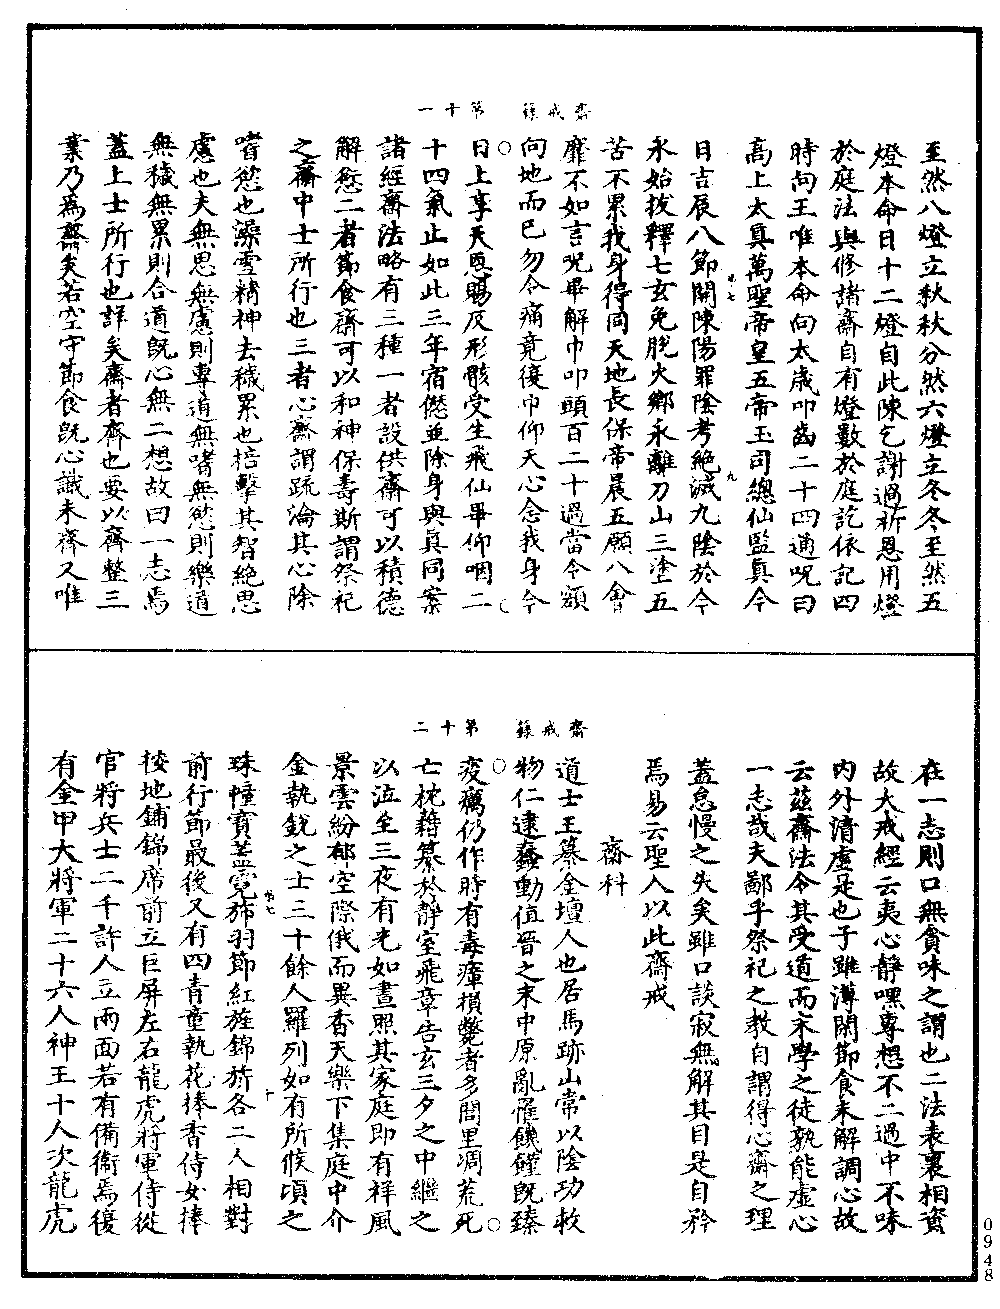 齋戒籙　第十一
至然八燈立秋秋分然六燈立冬冬至然五
燈本命日十二燈自此陳乞謝過祈恩用燈
於庭法與修諸齋自有燈數於庭訖依記四
時向王唯本命向太歲叩齒二十四通呪曰
高上太真萬聖帝皇五帝玉司總仙監真今
日吉辰八節開陳陽罪陰考絕滅九陰於今
永始拔釋七玄免脫火鄉永離刀山三塗五
苦不累我身得同天地長保帝晨五願八會
靡不如言呪畢解巾叩頭百二十過當令額
向地而已勿令痛竟復巾仰天心念我身今
日上享天恩賜反形骸受生飛仙畢仰咽二
十四氣止如此三年宿愆並除身與真同案
諸經齋法略有三種一者設供齋可以積德
解愆二者節食齋可以和神保壽斯謂祭祀
之齋中士所行也三者心齋謂疏瀹其心除
嗜慾也澡雪精神去穢累也掊擊其智絕思
慮也夫無思無慮則專道無嗜無慾則樂道
無穢無累則合道既心無二想故曰一志焉
蓋上士所行也詳矣齋者齊也要以齊整三
業乃為齋矣若空守節食既心識未齊又唯
志七
九
齋戒籙　第十二
在一志則口無貪味之謂也二法表裏相資
故大戒經云夷心靜嘿專想不二過中不味
內外清虛是也子雖薄閑節食未解調心故
云茲齋法令其受道而末學之徒孰能虛心
一志哉夫鄙乎祭祀之教自謂得心齋之理
蓋怠慢之失矣雖口談寂無解其目是自矜
焉易云聖人以此齋戒
齋科
道士王纂金壇人也居馬跡山常以陰功救
物仁逮蠢動值晉之末中原亂罹饑饉既臻
疫癘仍作時有毒瘴損斃者多閭里凋荒死
亡枕藉纂於靜室飛章告玄三夕之中繼之
以泣至三夜有光如晝照其家庭即有祥風
景雲紛郁空際俄而異香天樂下集庭中介
金執銳之士三十餘人羅列如有所候頃之
珠幢寶蓋霓旆羽節紅旌錦旂各二人相對
前行節最後又有四青童執花捧香侍女捧
桉地鋪錦席前立巨屏左右龍虎將軍侍從
官將兵士二千許人立兩面若有備衛焉復
有金甲大將軍二十六人神王十人次龍虎
志七
十
0948